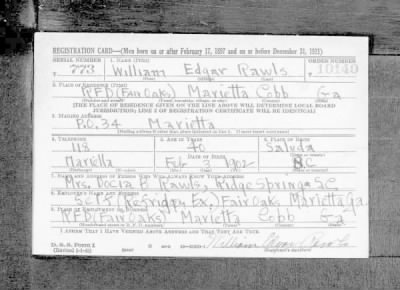 REGISTRATION CARD—(Men born on or after February 17, 1897 and on or before December 31, 1921)
SERIAL NUMBER 1. NAME (Print) ORDER NUMBER
T 773 William Edgar Rawls 10140
(First) (Middle) (Last)
2. PLACE OF RESIDENCE (Print)
RFD (Fair Oaks) Marietta Cobb Ga
(Number and street) (Town, township, village, or city) (County) (State)
[THE PLACE OF RESIDENCE GIVEN ON THE LINE ABOVE WILL DETERMINE LOCAL BOARD
JURISDICTION; LINE 2 OF REGISTRATION CERTIFICATE WILL BE IDENTICAL]
3. MAILING ADDRESS
P.O. 34 Marietta
[Mailing address if other than place indicated on line 2. If same insert word same]
4. TELEPHONE 5. AGE IN YEARS 6. PLACE OF BIRTH
118 40 Saluda
DATE OF BIRTH (Town or county)
Marietta Feb 3 1902 SC
7. NAME AND ADDRESS OF PERSON WHO WILL ALWAYS KNOW YOUR ADDRESS
Mrs. Docia B Rawls, Ridge Springs SC
8. EMPLOYER'S NAME AND ADDRESS
Fair Oaks, Marietta Ga
9. PLACE OF EMPLOYMENT OR BUSINESS
RFD (Fair Oaks) Marietta Cobb Ga
(Number and street or R. F. D. number) (Town) (County) (State)
I AFFIRM THAT I HAVE VERIFIED ABOVE ANSWERS AND THAT THEY ARE TRUE.
D. S. S. Form 1 William Edgar Rawls
(Revised 1-1-42) (Registrant's signature)